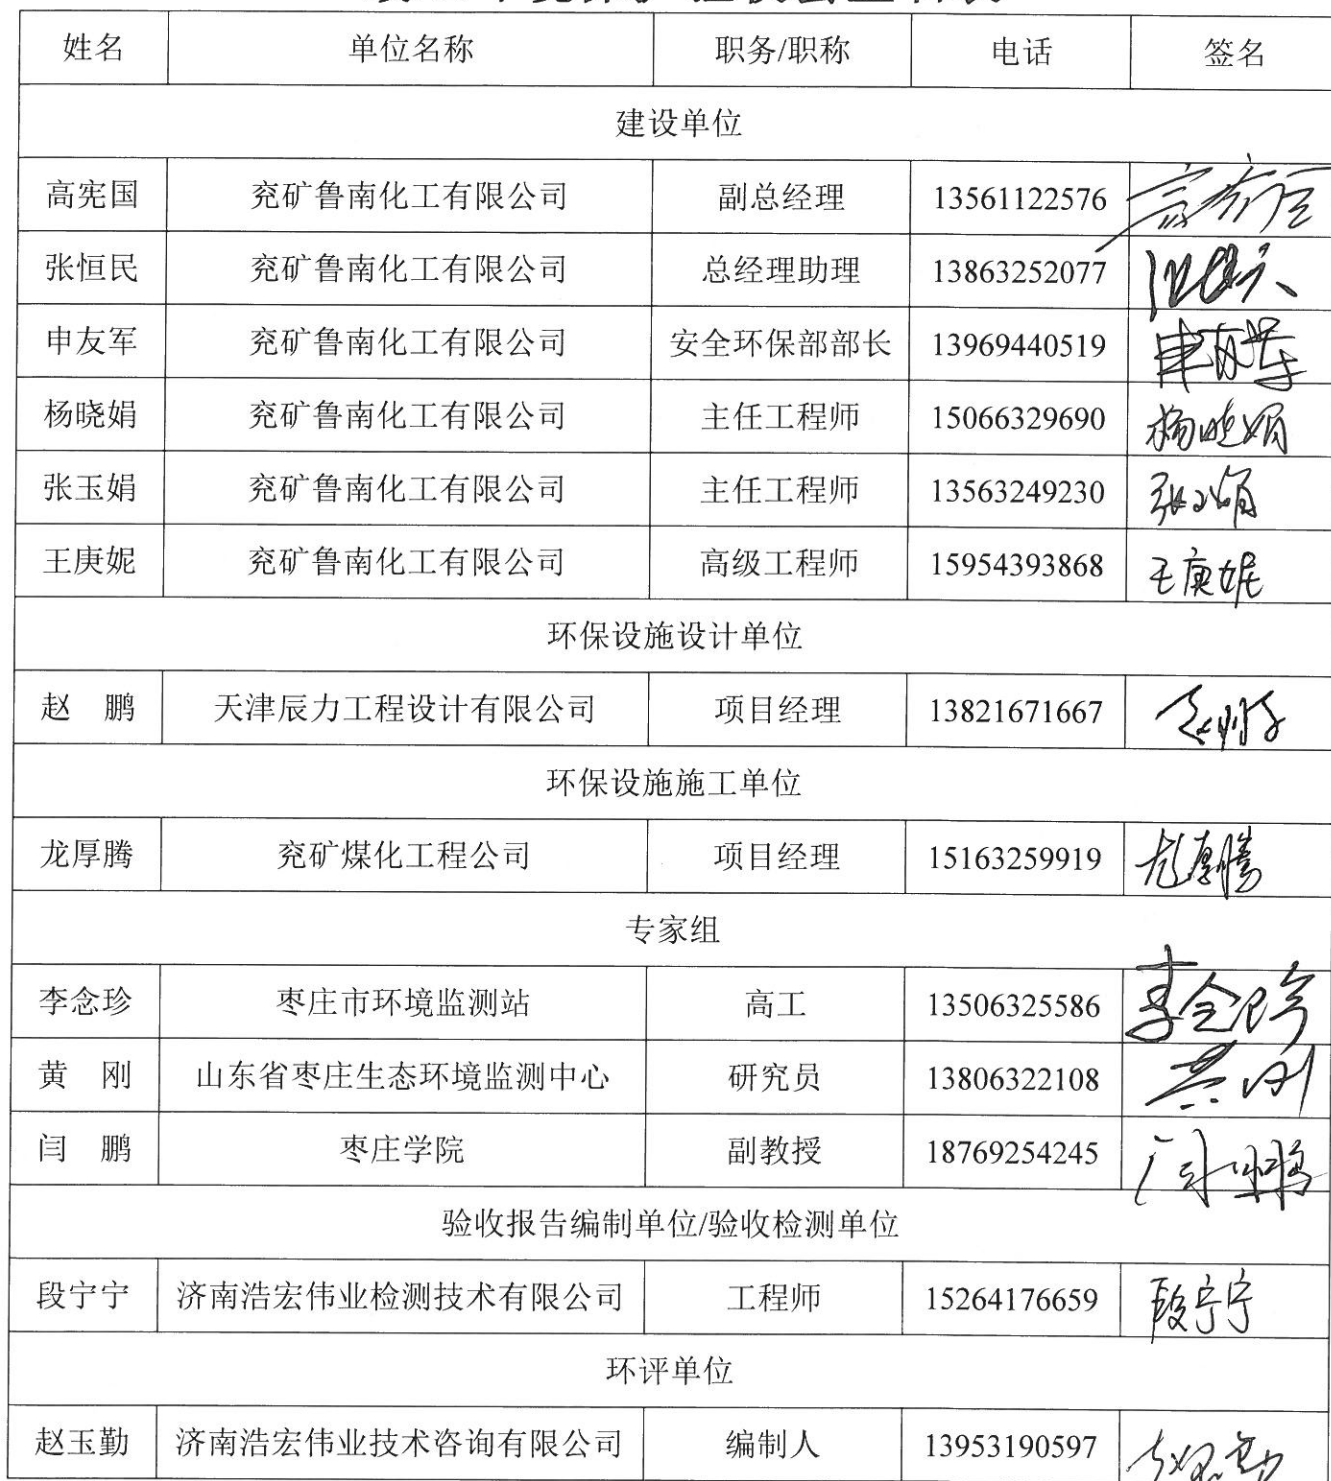 姓名 单位名称 职务/职称 电话 签名
建设单位
高宪国 兖矿鲁南化工有限公司 副总经理 13561122576
张恒民 兖矿鲁南化工有限公司 总经理助理 13863252077
申友军 兖矿鲁南化工有限公司 安全环保部部长 13969440519
杨晓娟 兖矿鲁南化工有限公司 主任工程师 15066329690 杨晓娟
张玉娟 兖矿鲁南化工有限公司 主任工程师 13563249230 张玉娟
王庚妮 兖矿鲁南化工有限公司 高级工程师 15954393868 王庚妮
环保设施设计单位
赵 鹏 天津辰力工程设计有限公司 项目经理 13821671667
环保设施施工单位
龙厚腾 兖矿煤化工程公司 项目经理 15163259919 龙厚腾
专家组
李念珍 枣庄市环境监测站 高工 13506325586 李念珍
黄 刚 山东省枣庄生态环境监测中心 研究员 13806322108 黄刚
闫 鹏 枣庄学院 副教授 18769254245
验收报告编制单位/验收检测单位
段宁宁 济南浩宏伟业检测技术有限公司 工程师 15264176659 段宁宁
环评单位
赵玉勤 济南浩宏伟业技术咨询有限公司 编制人 13953190597